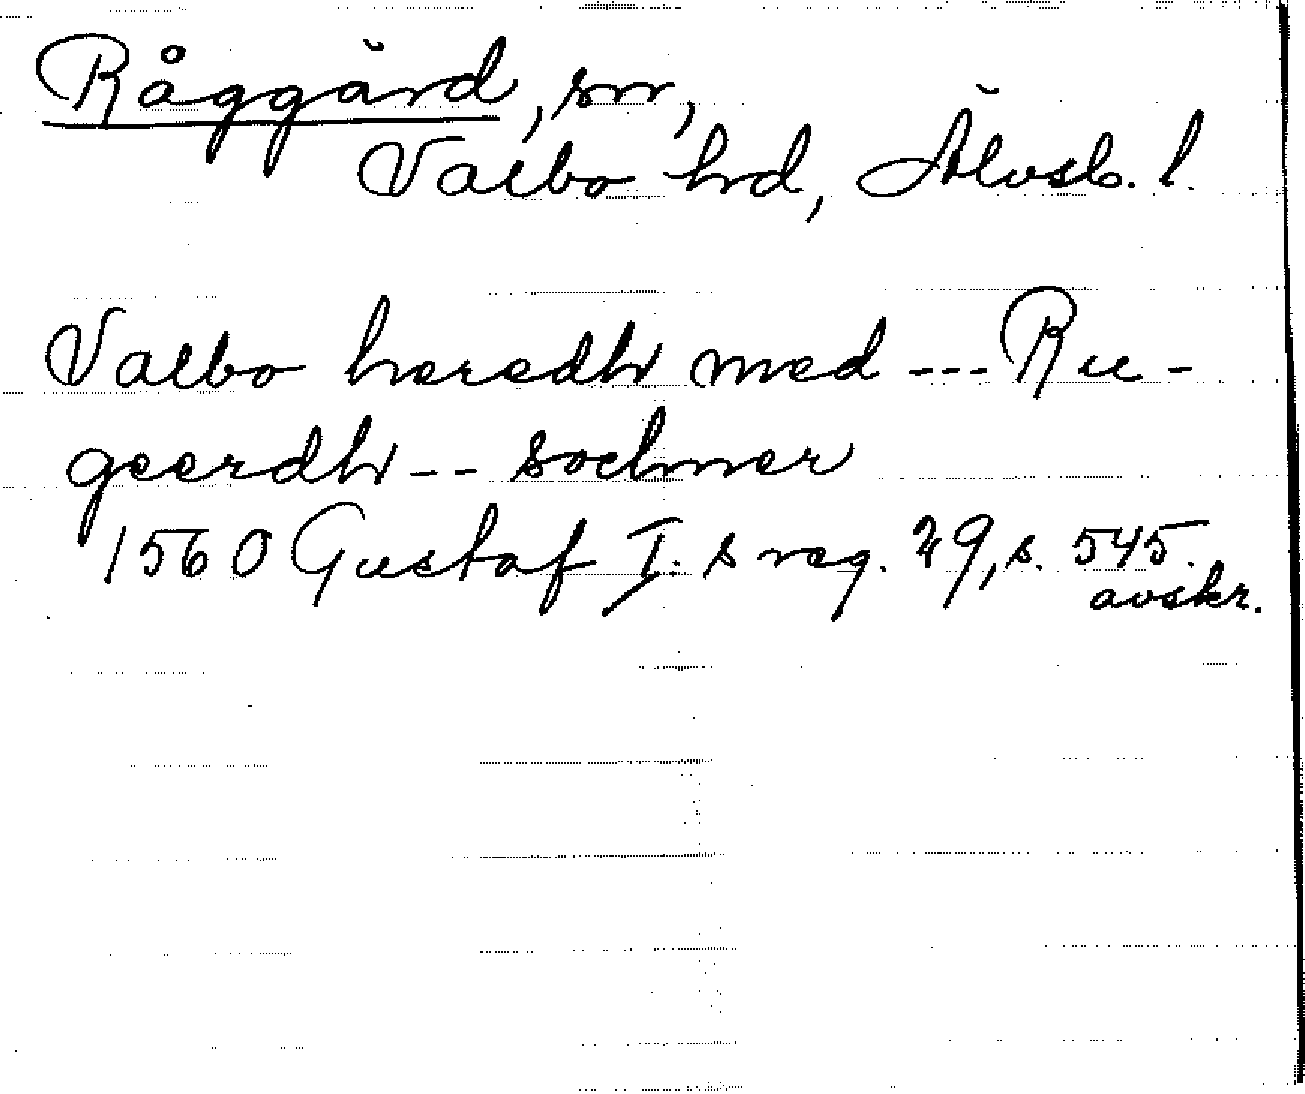 Råggärd, sn,
Valbo hd, Älvsb. l.
Valbo heredh med --- Ru-
geerdh -- sochner
1560 Gustaf I:s reg. 29, s. 545.
avskr.